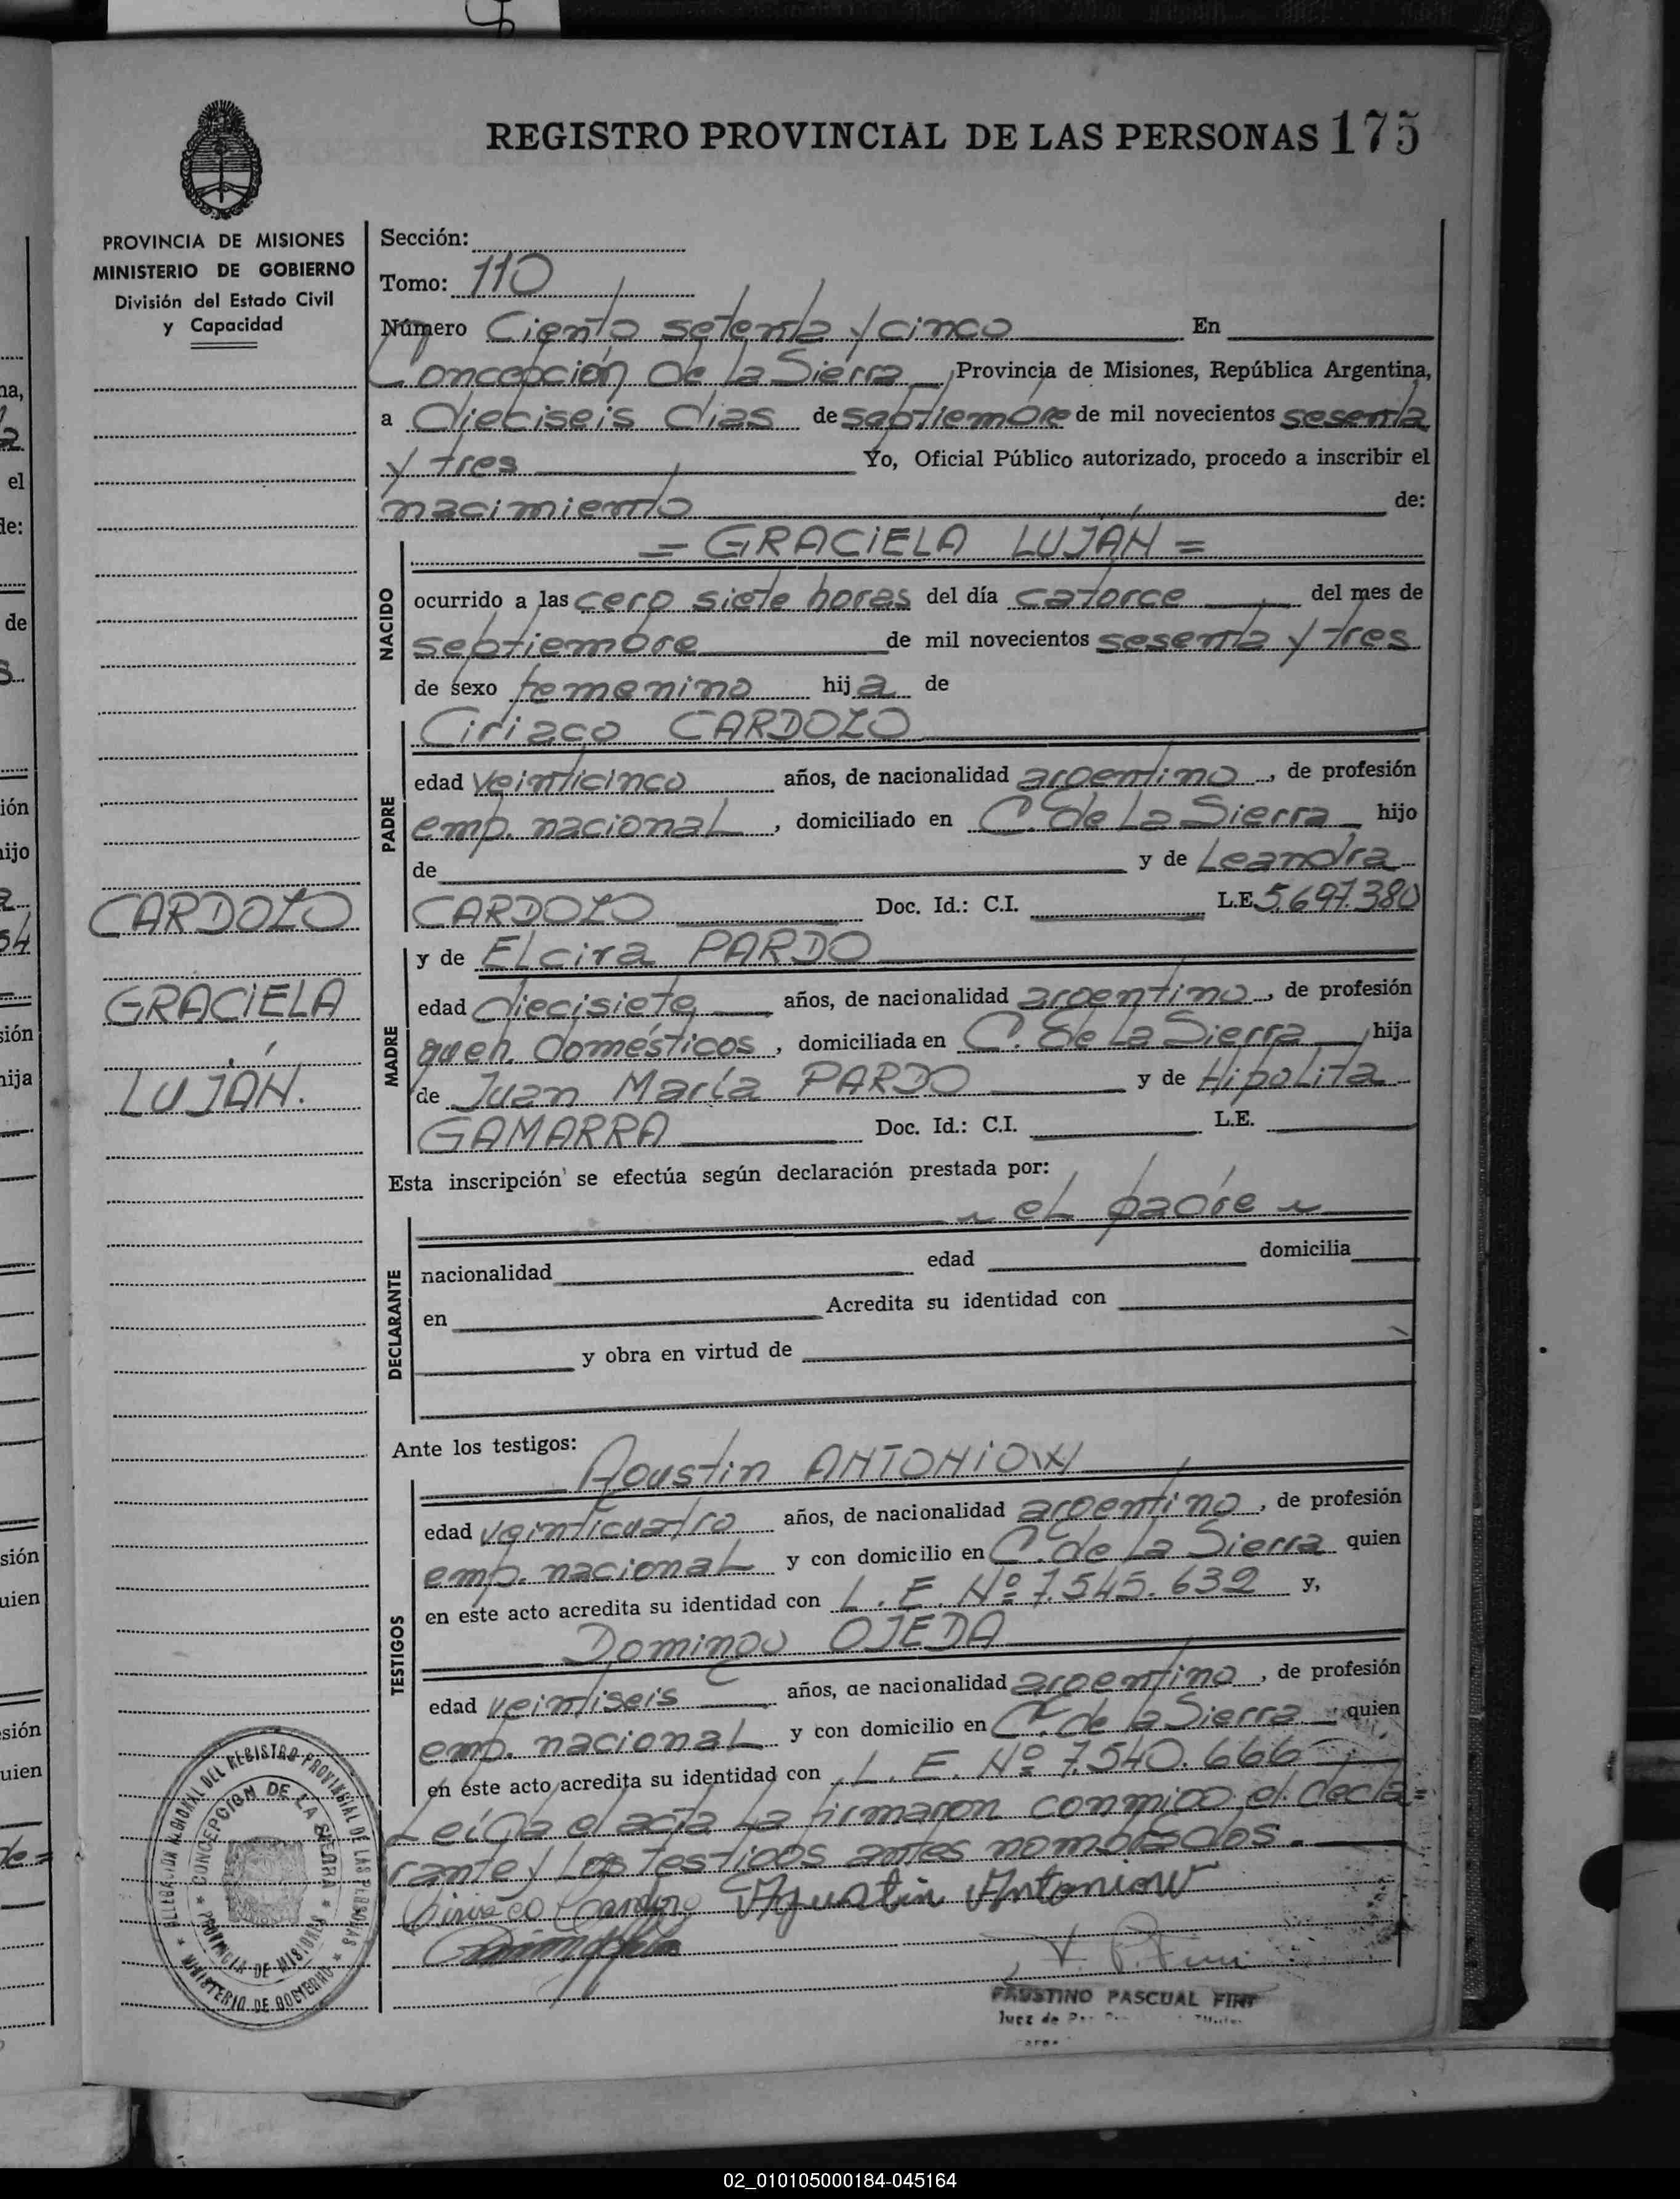 REGISTRO PROVINCIAL DE LAS PERSONAS 175
PROVINCIA DE MISIONES
MINISTERIO DE GOBIERNO
División del Estado Civil
y Capacidad
Sección:
Tomo: 110
Número Ciento setenta y cinco En
Concepción de la Sierra, Provincia de Misiones, República Argentina,
a dieciseis dias de septiembre de mil novecientos sesenta
y tres Yo, Oficial Público autorizado, procedo a inscribir el
nacimiento de:
= GRACIELA LUJÁN =
NACIDO
ocurrido a las cero siete horas del día catorce del mes de
septiembre de mil novecientos sesenta y tres
de sexo femenino hija de
Ciriaco CARDOZO
PADRE
edad veinticinco años, de nacionalidad argentino, de profesión
emp. nacional, domiciliado en C. de La Sierra hijo
de y de Leandra
CARDOZO Doc. Id.: C.I. L.E. 5.697.380
CARDOZO
GRACIELA
LUJÁN.
y de Elcira PARDO
MADRE
edad diecisiete años, de nacionalidad argentino, de profesión
queh. domésticos, domiciliada en C. de La Sierra, hija
de Juan María PARDO y de Hipolita
GAMARRA Doc. Id.: C.I. L.E.
Esta inscripción se efectúa según declaración prestada por:
el padre
DECLARANTE
nacionalidad edad domicilia
en Acredita su identidad con
y obra en virtud de
Ante los testigos:
Agustin ANTONIOW
TESTIGOS
edad veinticuatro años, de nacionalidad argentino, de profesión
emp. nacional y con domicilio en C. de La Sierra quien
en este acto acredita su identidad con L. E. Nº 7.545.632 y,
Domingo OJEDA
edad veintiseis años, de nacionalidad argentino, de profesión
emp. nacional y con domicilio en C. de la Sierra quien
en este acto acredita su identidad con L. E. Nº 7.540.666
Leída el acta la firmaron conmigo el decla=
rante y los testigos antes nombrados.
Ciriaco Cardozo Agustin Antoniow
F. P. Fini
FAUSTINO PASCUAL FINI
Juez de Paz
DELEGACION REGIONAL DEL REGISTRO PROVINCIAL DE LAS PERSONAS
MINISTERIO DE GOBIERNO
CONCEPCION DE LA SIERRA
PROVINCIA DE MISIONES
02_010105000184-045164